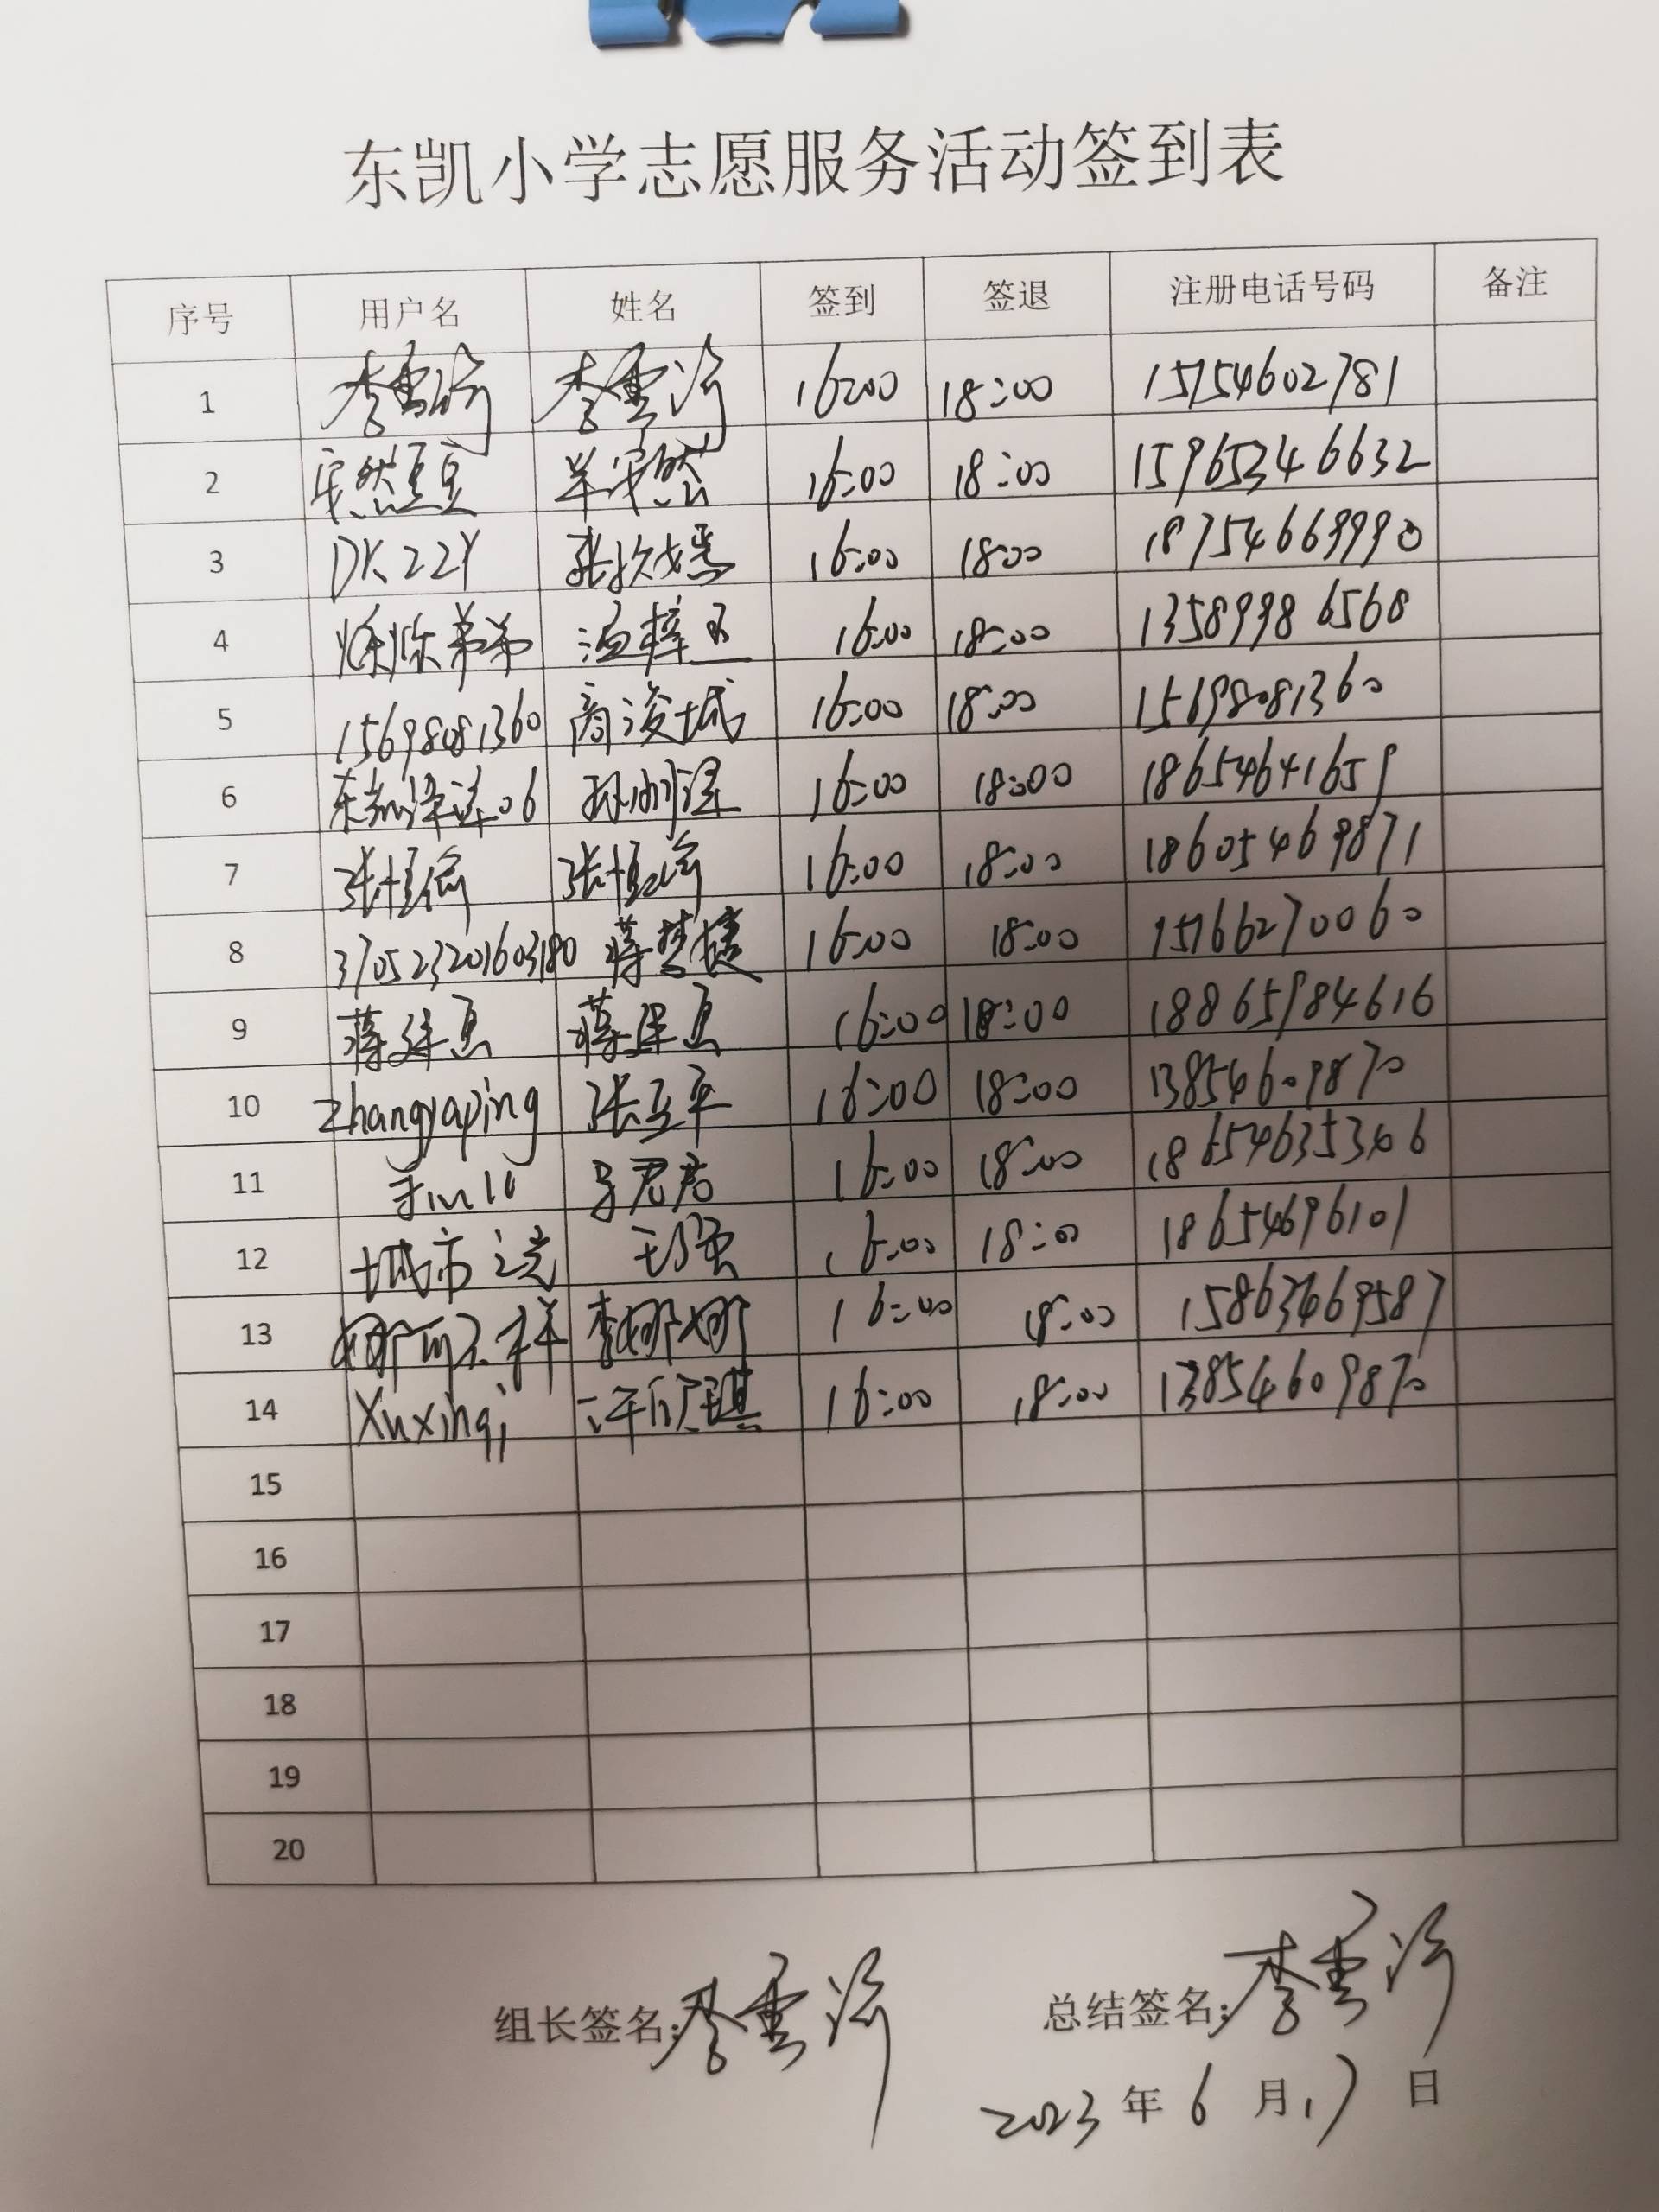 东凯小学志愿服务活动签到表
序号 用户名 姓名 签到 签退 注册电话号码 备注
1 李重 李重 16:00 18:00 15154602781
2 安然豆豆 安然 16:00 18:00 15965346632
3 DK22Y 张 16:00 18:00 18754669990
4 弟弟 温梓 16:00 18:00 13589986568
5 15698081360 商浚城 16:00 18:00 15698081360
6 东凯泽涵06 孙 16:00 18:00 18654641659
7 张恒 张恒 16:00 18:00 18605469871
8 370523201603180 蒋梦捷 16:00 18:00 15166270060
9 蒋建 蒋建 16:00 18:00 18865984616
10 zhangyaping 张亚平 16:00 18:00 13854609870
11 君君 16:00 18:00 18654635306
12 城市之光 强 16:00 18:00 18654696101
13 不样 李娜娜 16:00 18:00 15863469587
14 Xuxinqi 许欣琪 16:00 18:00 13854609870
15
16
17
18
19
20
组长签名: 李重 总结签名: 李重
2023 年 6 月 17 日